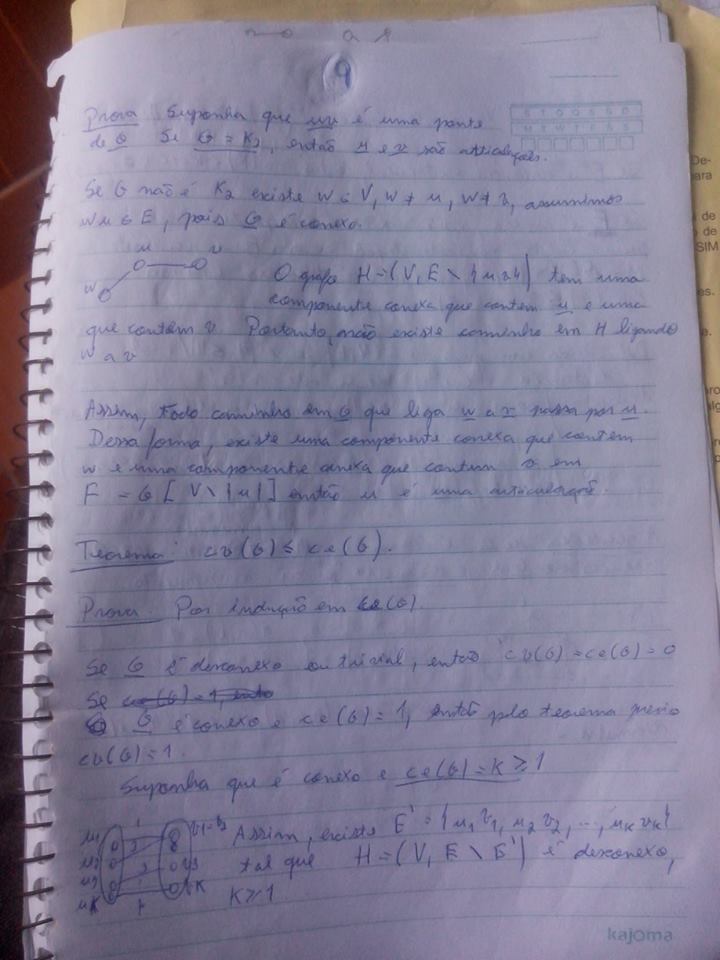 9
Prova Suponha que uv é uma ponte
de G Se G = K2, então u e v são articulações.
Se G não é K2 existe w ∈ V, w ≠ u, w ≠ v, assumimos
wu ∈ E, pois G é conexo.
u v
w
O grafo H = (V, E \ {uv}) tem uma
componente conexa que contem u e uma
que contém v. Portanto, não existe caminho em H ligando
w a v
Assim, todo caminho em G que liga w a v passa por u.
Dessa forma, existe uma componente conexa que contém
w e uma componente conexa que contem v em
F = G [V \ {u}] então u é uma articulação.
Teorema: cv(G) ≤ ce(G).
Prova. Por indução em ce(G).
Se G é desconexo ou trivial, então cv(G) = ce(G) = 0
Se ce(G) = 1, então
G é conexo e ce(G) = 1, então pelo teorema previo
cv(G) = 1.
Suponha que é conexo e ce(G) = K ≥ 1
Assim, existe E' = {u1v1, u2v2, ..., uKvK}
tal que H = (V, E \ E') é desconexo,
K ≥ 1
u1 v1=v2
u2 v3
u3
uK vK
kajoma